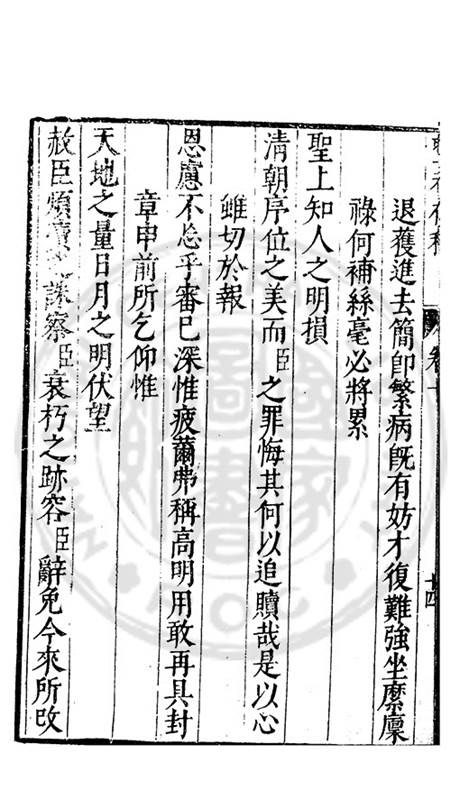 退蒦進去簡即繁病旣有妨才復難強坐縻廩
祿何補絲毫必將累
聖上知人之明損
清朝序位之美而臣之罪悔其何以追贖哉是以心
雖切於報
恩慮不忘乎審己深惟疲薾弗稱高明用敢再具封
章申前所乞仰惟
天地之量日月之明伏望
赦臣煩瀆 誅察臣衰朽之跡容臣辭免今來所改
卷十
十四